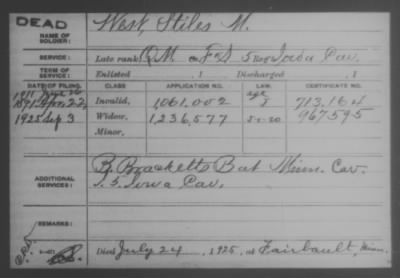 DEAD
NAME OF SOLDIER:
West, Stiles M.
SERVICE:
Late rank, Q.M. F&S 5 Reg't Iowa Cav.
TERM OF SERVICE:
Enlisted , 1 Discharged , 1
DATE OF FILING. CLASS. APPLICATION NO. LAW. CERTIFICATE NO.
1911 June 26 age
1891 Apr. 22 Invalid, 1,061,002 713.164
1925 Sep 3 Widow, 1,236,577 5-1-20 967595
Minor,
ADDITIONAL SERVICES:
B. Bracketts Bat Minn. Cav.
5 Iowa Cav.
REMARKS:
Died July 24, 1925, at Faribault, Minn.